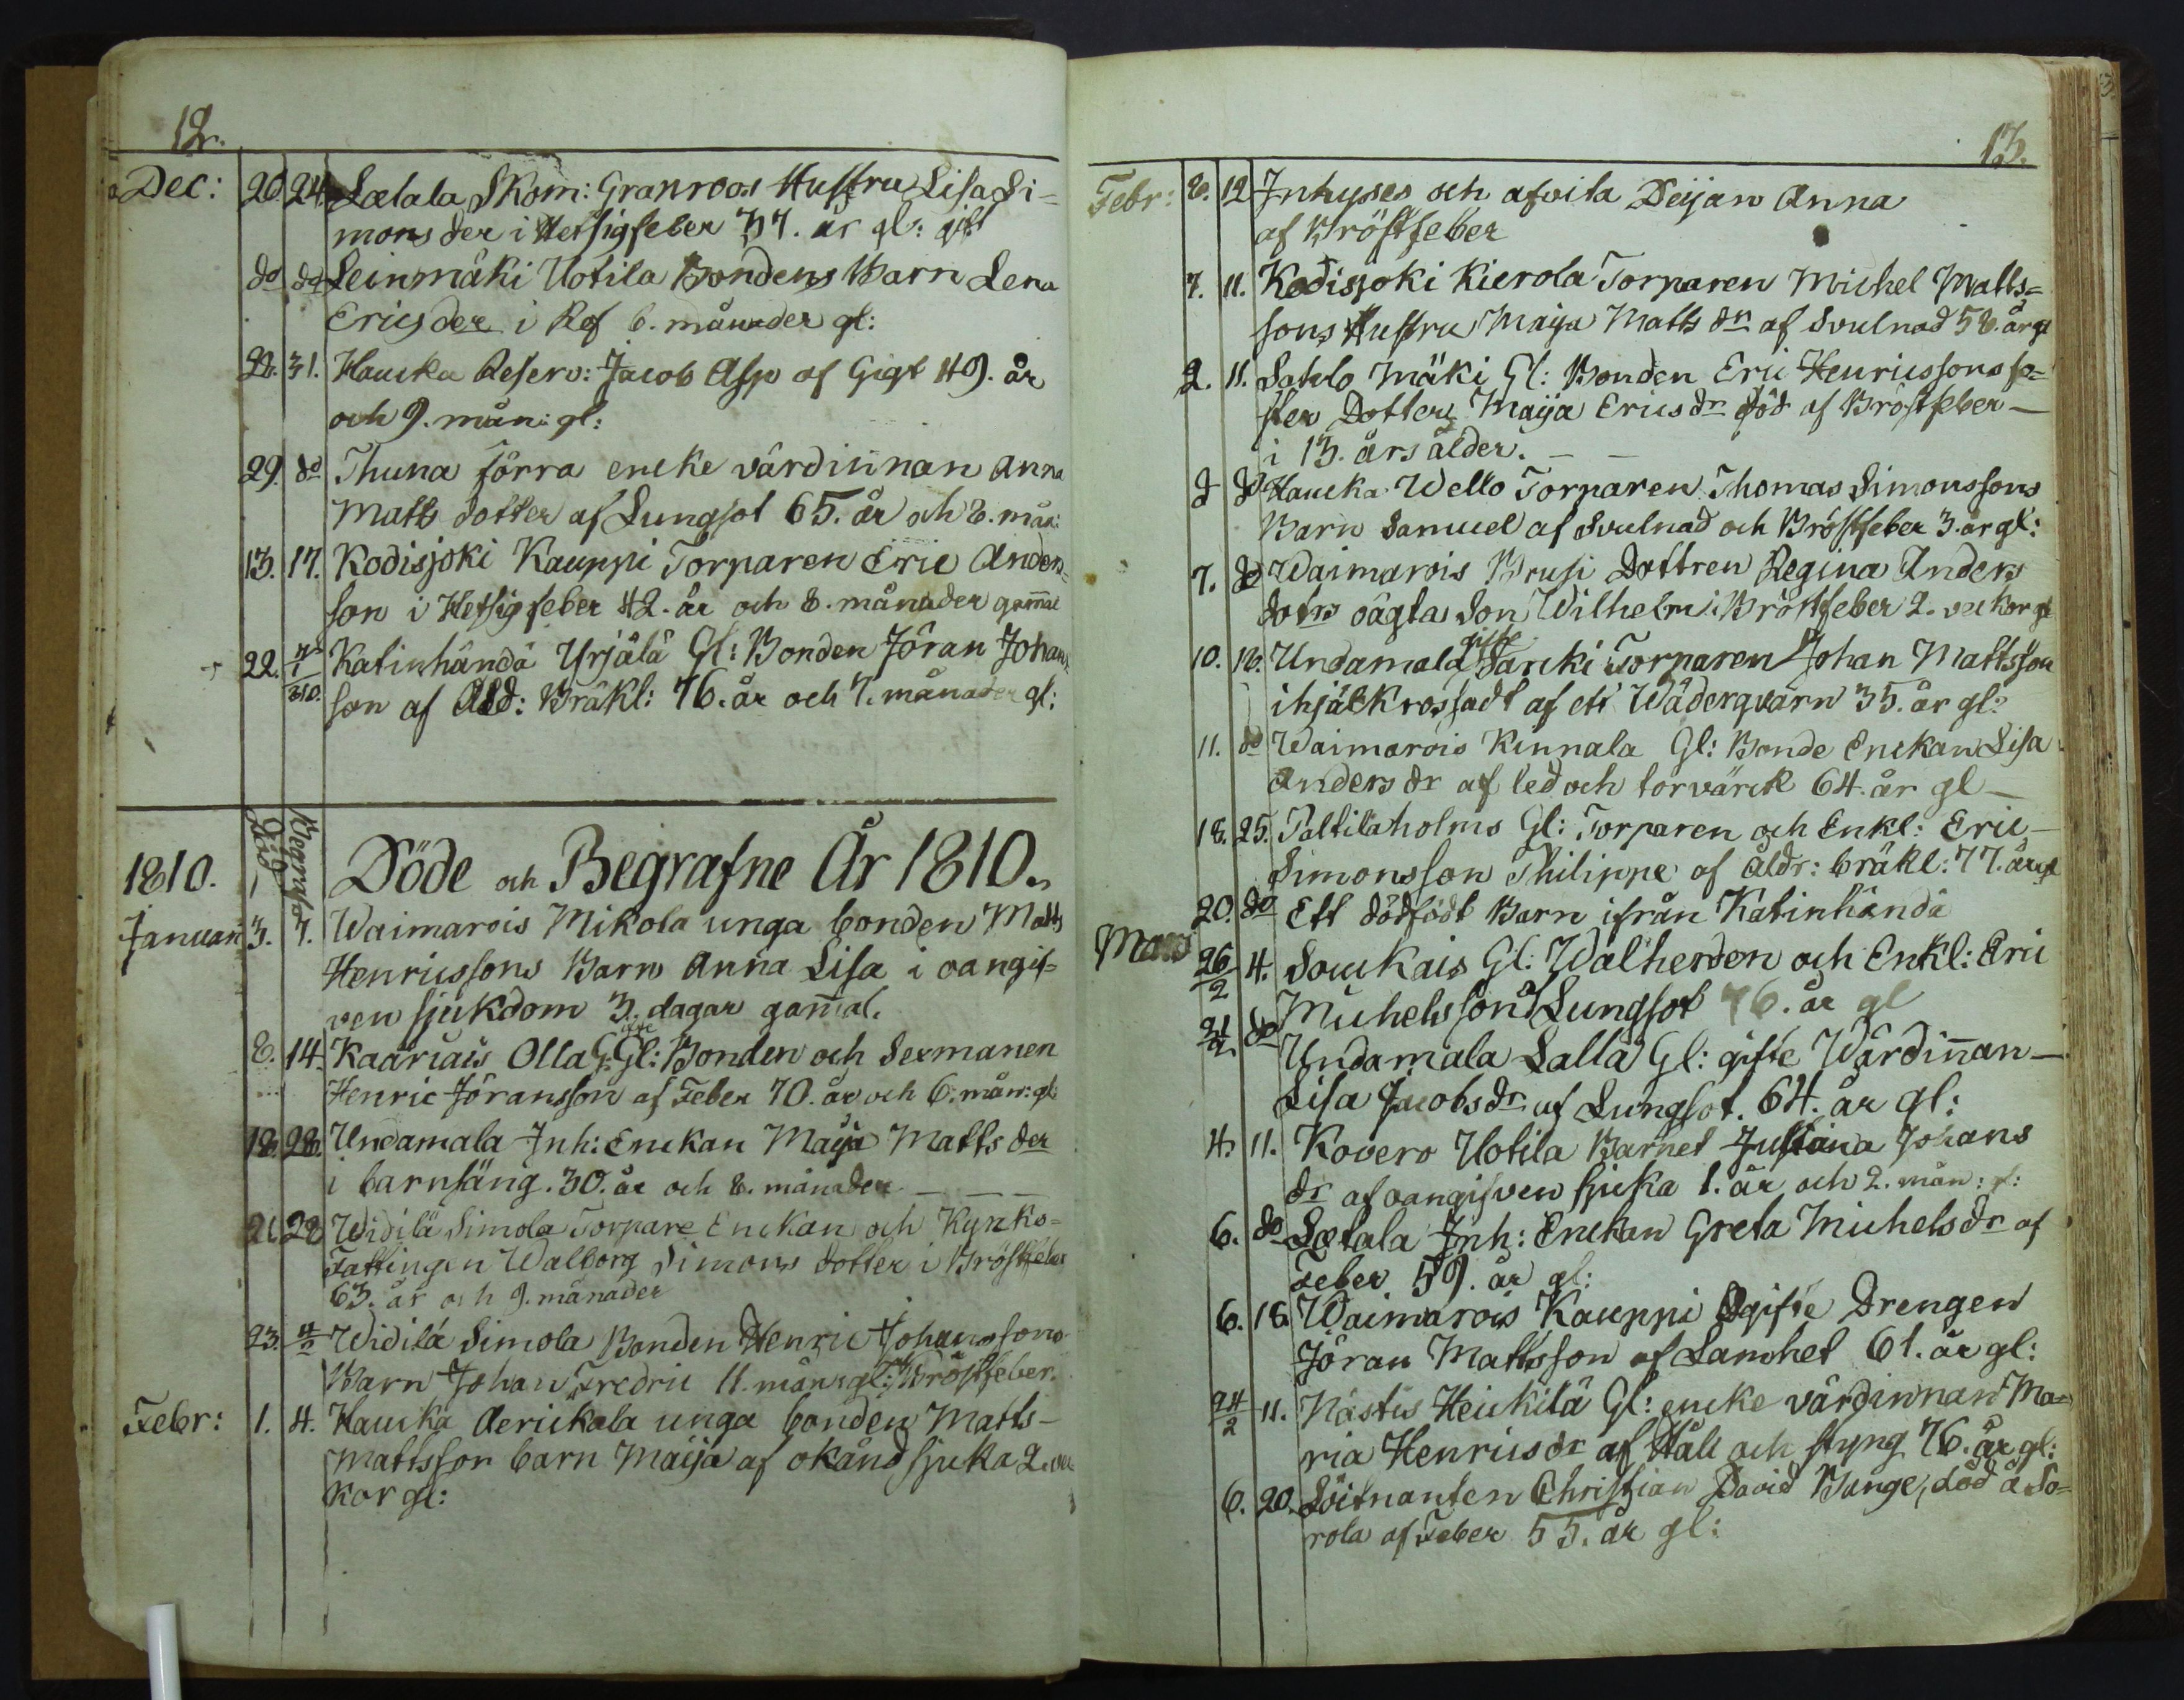 12.
Dec: 20. 24. Lætala SKom: Granroos Hustru Lisa Si=
mons der i Hetsigfeber 37. år gl: gift
do do Leinmäki Uotila Bondens Barn Lena
Erics der i Rof 6. månader gl:
28. 31. Haucka Reserv: Jacob Asp af Gigt 49. år
och 9. mån: gl:
29. do Thuna förra encke värdinnan Anna
Matts dotter af Lungsot 65. år och 8. mån:
13. 17. Kodisjoki Kauppi Torparen Eric Anders=
son i Hetsigfeber 42. år och 8. månader gam̄al
22. 7/1 810. Katinhändä Yrjälä Gl: Bonden Jöran Johans
son af Åld: Bräkl: 76. år och 7. månader gl:
1810. Död Begrafd Döde och Begrafne År 1810.
Januari 3. 7. Waimarois Mikola unga bonden Matts
Henricssons Barn Anna Lisa i oangif=
ven sjukdom 3. dagar gam̄al.
8. 14. Kaariais Olla Gifte Gl: Bonden och Sexmanen
Henric Jöransson af Feber 70. år och 6. mån: gl:
18. 28. Undamala Inh: Enckan Maija Matts der
i barnsäng. 30. år och 8. månader
21. 28 Widilä Simola Torpare Enckan och Kyrko=
Fattingen Walborg Simons dotter i Bröstfeber
63. år och 9. månader
23. 4/2 Widilä Simola Bonden Henric Johanssons
Barn Johan Fredric 11. mån: gl: Bröstfeber.
Febr: 1. 4. Haucka Aerickala unga bonden Matts
Mattsson barn Maija af okänd sjuka 2. vec
kor gl:
13.
Febr: 8. 12 Inhyses och afvita Peijan Anna
af Bröstfeber
7. 11. Kodisjoki Kierola Torparen Michel Matts=
sons Hustru Maija Matts dr af Svulnad 58. år gl
2. 11. Sahlo Mäki Gl: Bonden Eric Henricssons fo=
ster Dotter Maija Erics dr död af Bröstfeber
i 13. års ålder.
do do Haucka Wello Torparen Thomas Simonssons
Barn Samuel af Svulnad och Bröstfeber 3. år gl:
7. do Waimarois Prusi Dottren Regina Anders
dotrs oägta Son Wilhelm i Bröstfeber 2. veckor gl
10. 18. Undamala gifte Jancki Torparen Johan Mattsson
ihjälkrossadt af ett Wäderqvarn 35. år gl:
11. do Waimarois Kinnala Gl: Bonde Enckan Lisa
Anders dr af led och torvärck 64. år gl
18. 25. Paltilaholms Gl: Torparen och Enkl: Eric
Simonsson Philippe af åldr: bräkl: 77. år gl
20. do Ett dödfödt Barn ifrån Katinhändä
Mars 26/2 4. Souckais Gl: Wallherden och Enkl: Eric
Michelsson af Lungsot 76. år gl
21/2 do Undamala Salla Gl: gifte Wärdin̄an
Lisa Jacobs dr af Lungsot. 64. år gl:
4. 11. Kovero Uotila Barnet Justina Johans
dr af oangifven sjuka 1. år och 2. mån: gl:
6. do Lætala Inh: Enckan Greta Michels dr af
Feber 59. år gl:
6. 18. Waimarois Kauppi Ogifte Drengen
Jöran Mattsson af Lamhet 61. år gl:
24/2 11. Nästis Heickilä Gl: encke värdinnan Ma=
ria Henrics dr af Håll och styng 76. år gl:
6. 20. Löitnanten Christian David Bange, död å So=
rola af Feber 55. år gl: